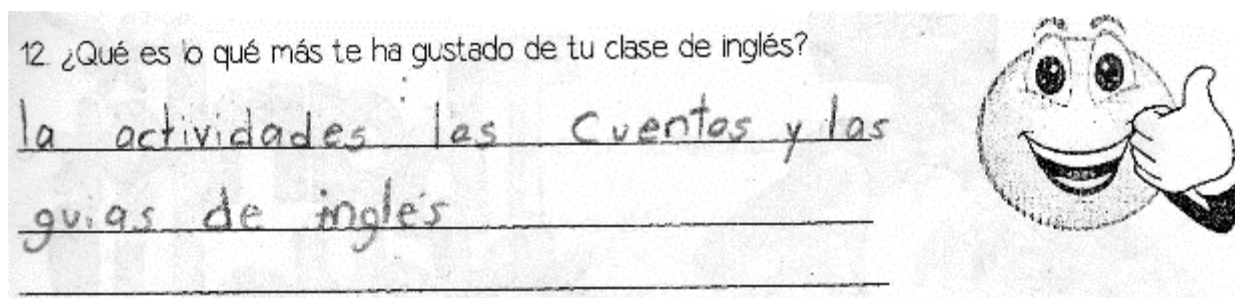 12. ¿Qué es lo qué más te ha gustado de tu clase de inglés?
la actividades las cuentos y las
guias de inglés